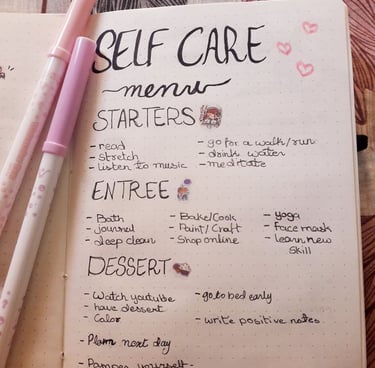 SELF CARE
menu
STARTERS
- read
- stretch
- listen to music
- go for a walk/run
- drink water
- meditate
ENTREE
- Bath
- journal
- deep clean
- Bake/Cook
- Paint/Craft
- Shop online
- yoga
- Face mask
- learn new
skill
DESSERT
- Watch youtube
- have dessert
- Color
- go to bed early
- write positive notes.
- Plan next day
- Pamper yourself -